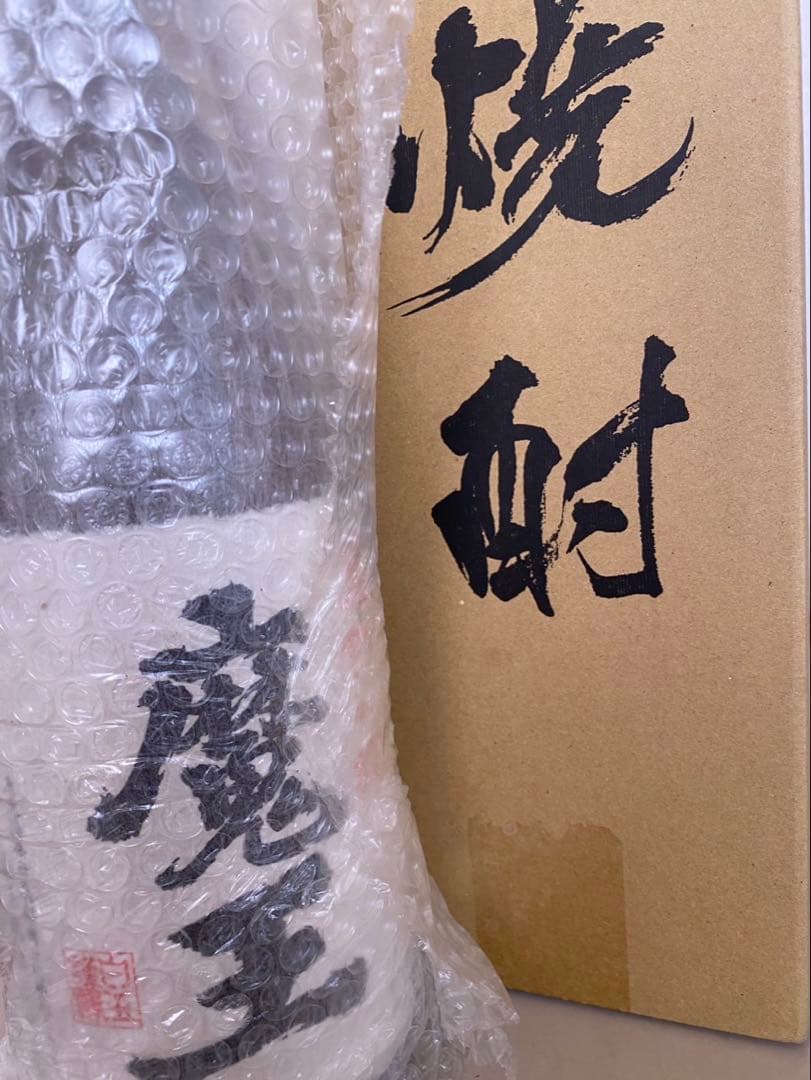 焼酎
魔王